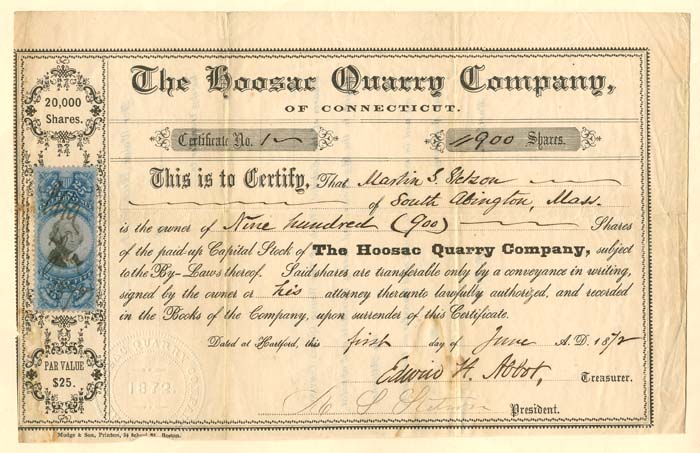 The Hoosac Quarry Company,
OF CONNECTICUT.
20,000
Shares.
Certificate No. 1
900 Shares.
This is to Certify, That Martin S. Stetson
of South Abington, Mass.
is the owner of Nine hundred (900) Shares
of the paid up Capital Stock of The Hoosac Quarry Company, subject
to the By-Laws thereof. Said shares are transferable only by a conveyance in writing,
signed by the owner or his attorney thereunto lawfully authorized, and recorded
in the Books of the Company, upon surrender of this Certificate.
Dated at Hartford, this first day of June A.D. 1872
PAR VALUE
$25.
1872
Edwin H. Abbot, Treasurer.
President.
Mudge & Son, Printers, 34 School St. Boston.